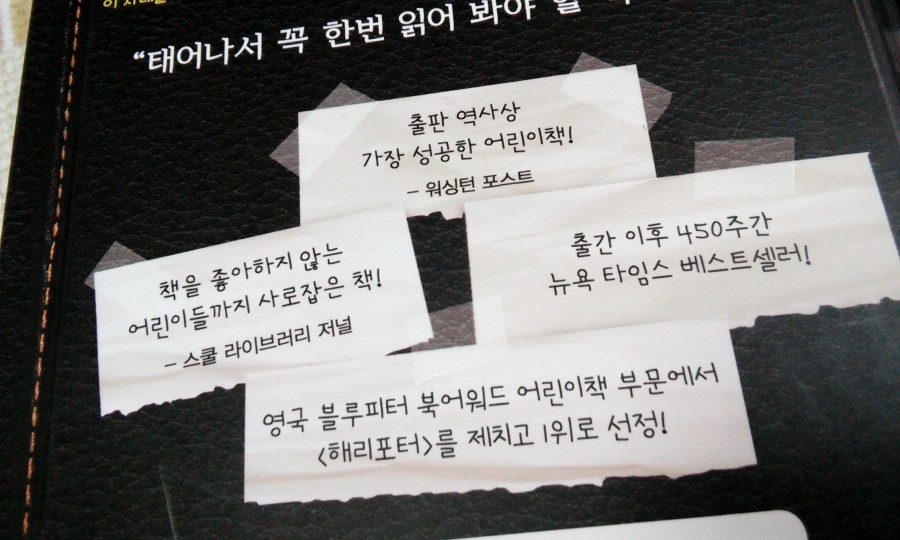 “태어나서 꼭 한번 읽어 봐야 할
출판 역사상
가장 성공한 어린이책!
- 워싱턴 포스트
출간 이후 450주간
뉴욕 타임스 베스트셀러!
책을 좋아하지 않는
어린이들까지 사로잡은 책!
- 스쿨 라이브러리 저널
영국 블루피터 북어워드 어린이책 부문에서
<해리포터>를 제치고 1위로 선정!